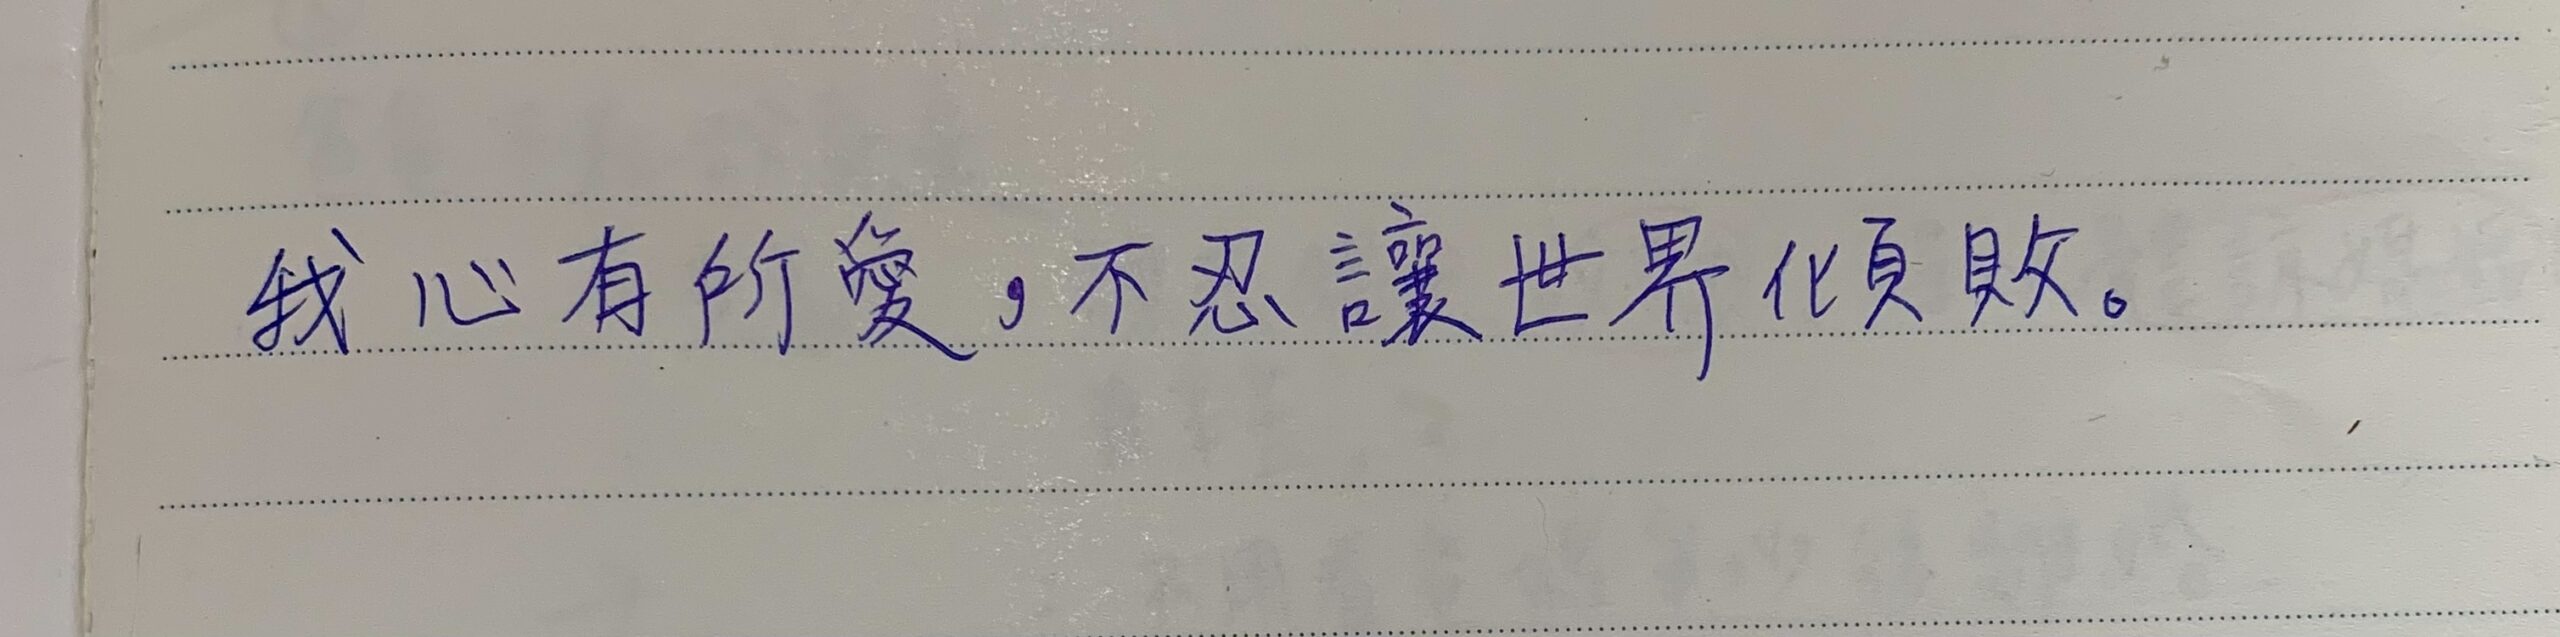 我心有所愛，不忍讓世界傾敗。